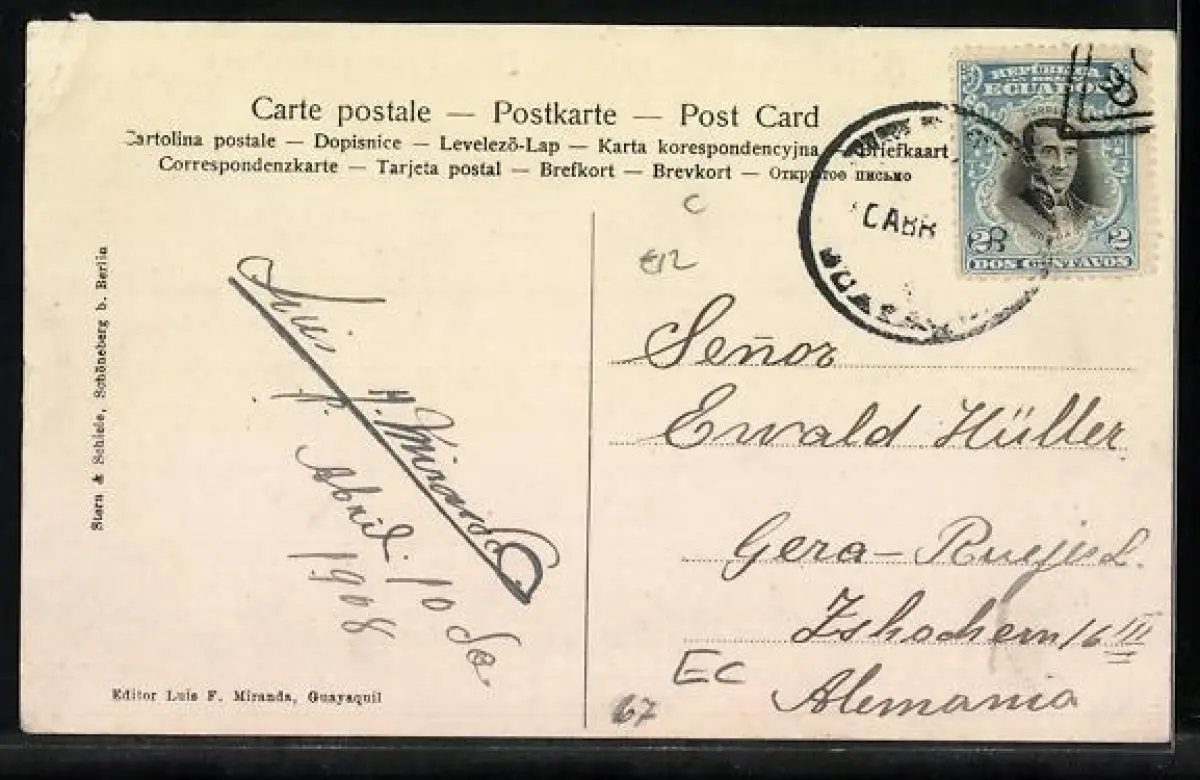 Carte postale — Postkarte — Post Card
Cartolina postale — Dopisnice — Levelezõ-Lap — Karta korespondencyjna — Briefkaart
Correspondenzkarte — Tarjeta postal — Brefkort — Brevkort — Открытое письмо
ECUADOR
2 2
DOS CENTAVOS
GUAYA
C
€12
Señor
Ewald Hüller
Gera-
16 III
Alemania
EC
67
Luis F. Miranda
Abril 10 de
1908
Stern & Schiele, Schöneberg b. Berlin
Editor Luis F. Miranda, Guayaquil